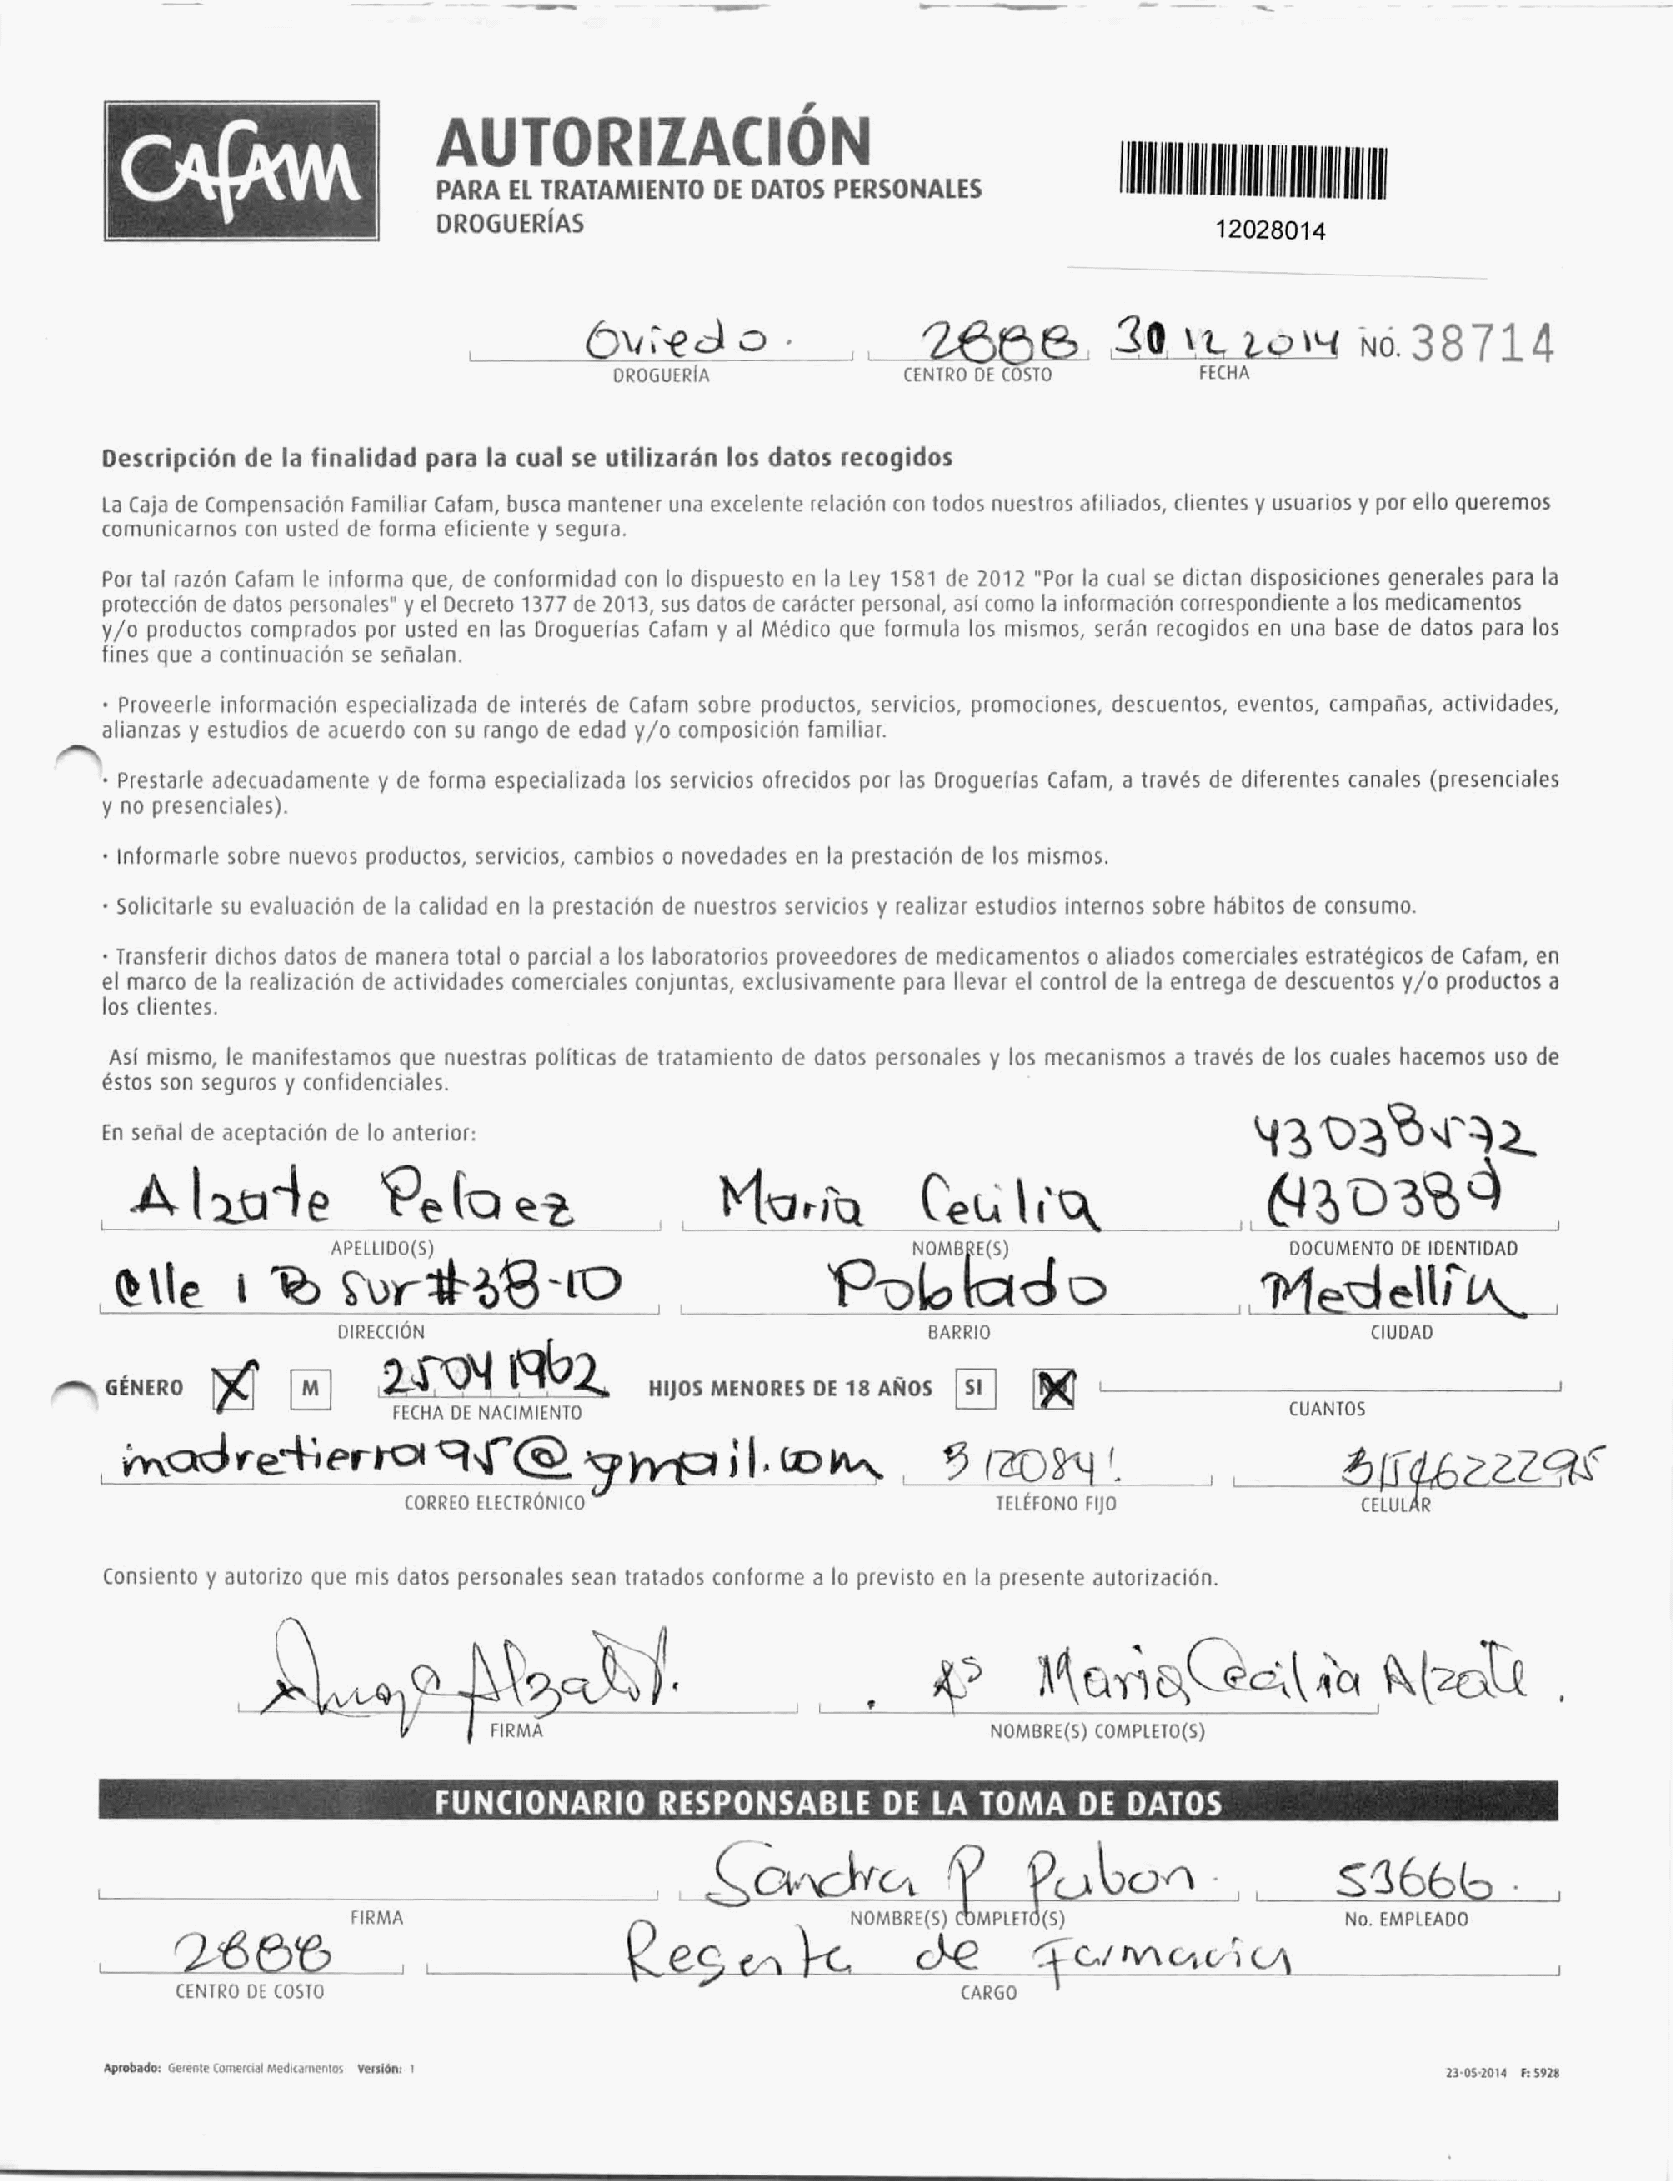 Cafam
AUTORIZACIÓN
PARA EL TRATAMIENTO DE DATOS PERSONALES
DROGUERÍAS
12028014
Oviedo. 2888 30 12 2014 NO. 38714
DROGUERÍA CENTRO DE COSTO FECHA
Descripción de la finalidad para la cual se utilizarán los datos recogidos
La Caja de Compensación Familiar Cafam, busca mantener una excelente relación con todos nuestros afiliados, clientes y usuarios y por ello queremos
comunicarnos con usted de forma eficiente y segura.
Por tal razón Cafam le informa que, de conformidad con lo dispuesto en la Ley 1581 de 2012 "Por la cual se dictan disposiciones generales para la
protección de datos personales" y el Decreto 1377 de 2013, sus datos de carácter personal, así como la información correspondiente a los medicamentos
y/o productos comprados por usted en las Droguerías Cafam y al Médico que formula los mismos, serán recogidos en una base de datos para los
fines que a continuación se señalan.
· Proveerle información especializada de interés de Cafam sobre productos, servicios, promociones, descuentos, eventos, campañas, actividades,
alianzas y estudios de acuerdo con su rango de edad y/o composición familiar.
· Prestarle adecuadamente y de forma especializada los servicios ofrecidos por las Droguerías Cafam, a través de diferentes canales (presenciales
y no presenciales).
· Informarle sobre nuevos productos, servicios, cambios o novedades en la prestación de los mismos.
· Solicitarle su evaluación de la calidad en la prestación de nuestros servicios y realizar estudios internos sobre hábitos de consumo.
· Transferir dichos datos de manera total o parcial a los laboratorios proveedores de medicamentos o aliados comerciales estratégicos de Cafam, en
el marco de la realización de actividades comerciales conjuntas, exclusivamente para llevar el control de la entrega de descuentos y/o productos a
los clientes.
Así mismo, le manifestamos que nuestras políticas de tratamiento de datos personales y los mecanismos a través de los cuales hacemos uso de
éstos son seguros y confidenciales.
En señal de aceptación de lo anterior:
43038572
Alzate Pelaez Maria Cecilia
APELLIDO(S) NOMBRE(S) DOCUMENTO DE IDENTIDAD
Clle 1 B Sur #38-10 Poblado Medellín
DIRECCIÓN BARRIO CIUDAD
GÉNERO M 25 04 1962 HIJOS MENORES DE 18 AÑOS SI
FECHA DE NACIMIENTO CUANTOS
madretierra95@gmail.com 3120841 3154622295
CORREO ELECTRÓNICO TELÉFONO FIJO CELULAR
Consiento y autorizo que mis datos personales sean tratados conforme a lo previsto en la presente autorización.
Maria Cecilia Alzate.
FIRMA NOMBRE(S) COMPLETO(S)
FUNCIONARIO RESPONSABLE DE LA TOMA DE DATOS
Sandra P Pabon. 53666.
FIRMA NOMBRE(S) COMPLETO(S) No. EMPLEADO
2888 Regente de Farmacia
CENTRO DE COSTO CARGO
Aprobado: Gerente Comercial Medicamentos Versión: 1
23-05-2014 F: 5928